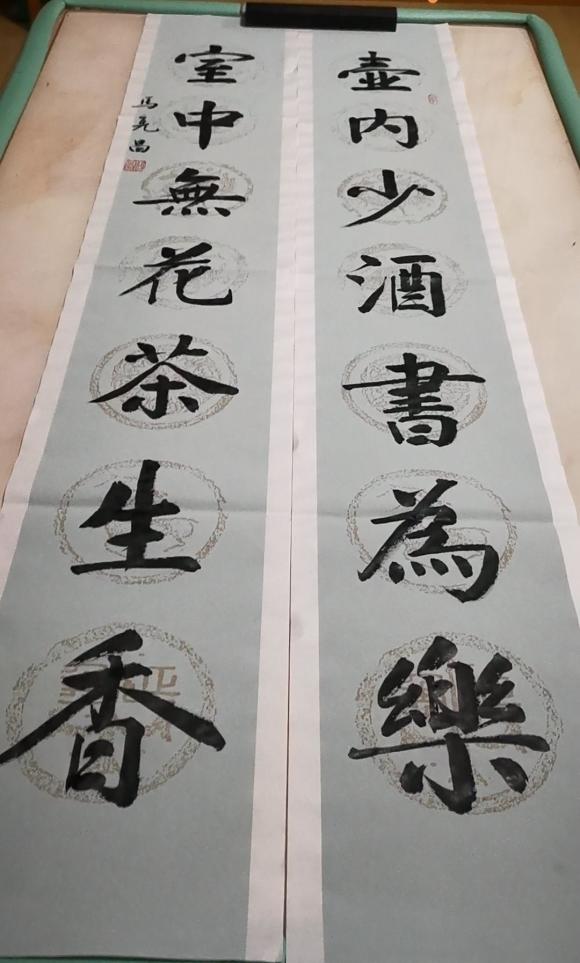 壺内少酒書為樂
室中無花茶生香
馬堯昌